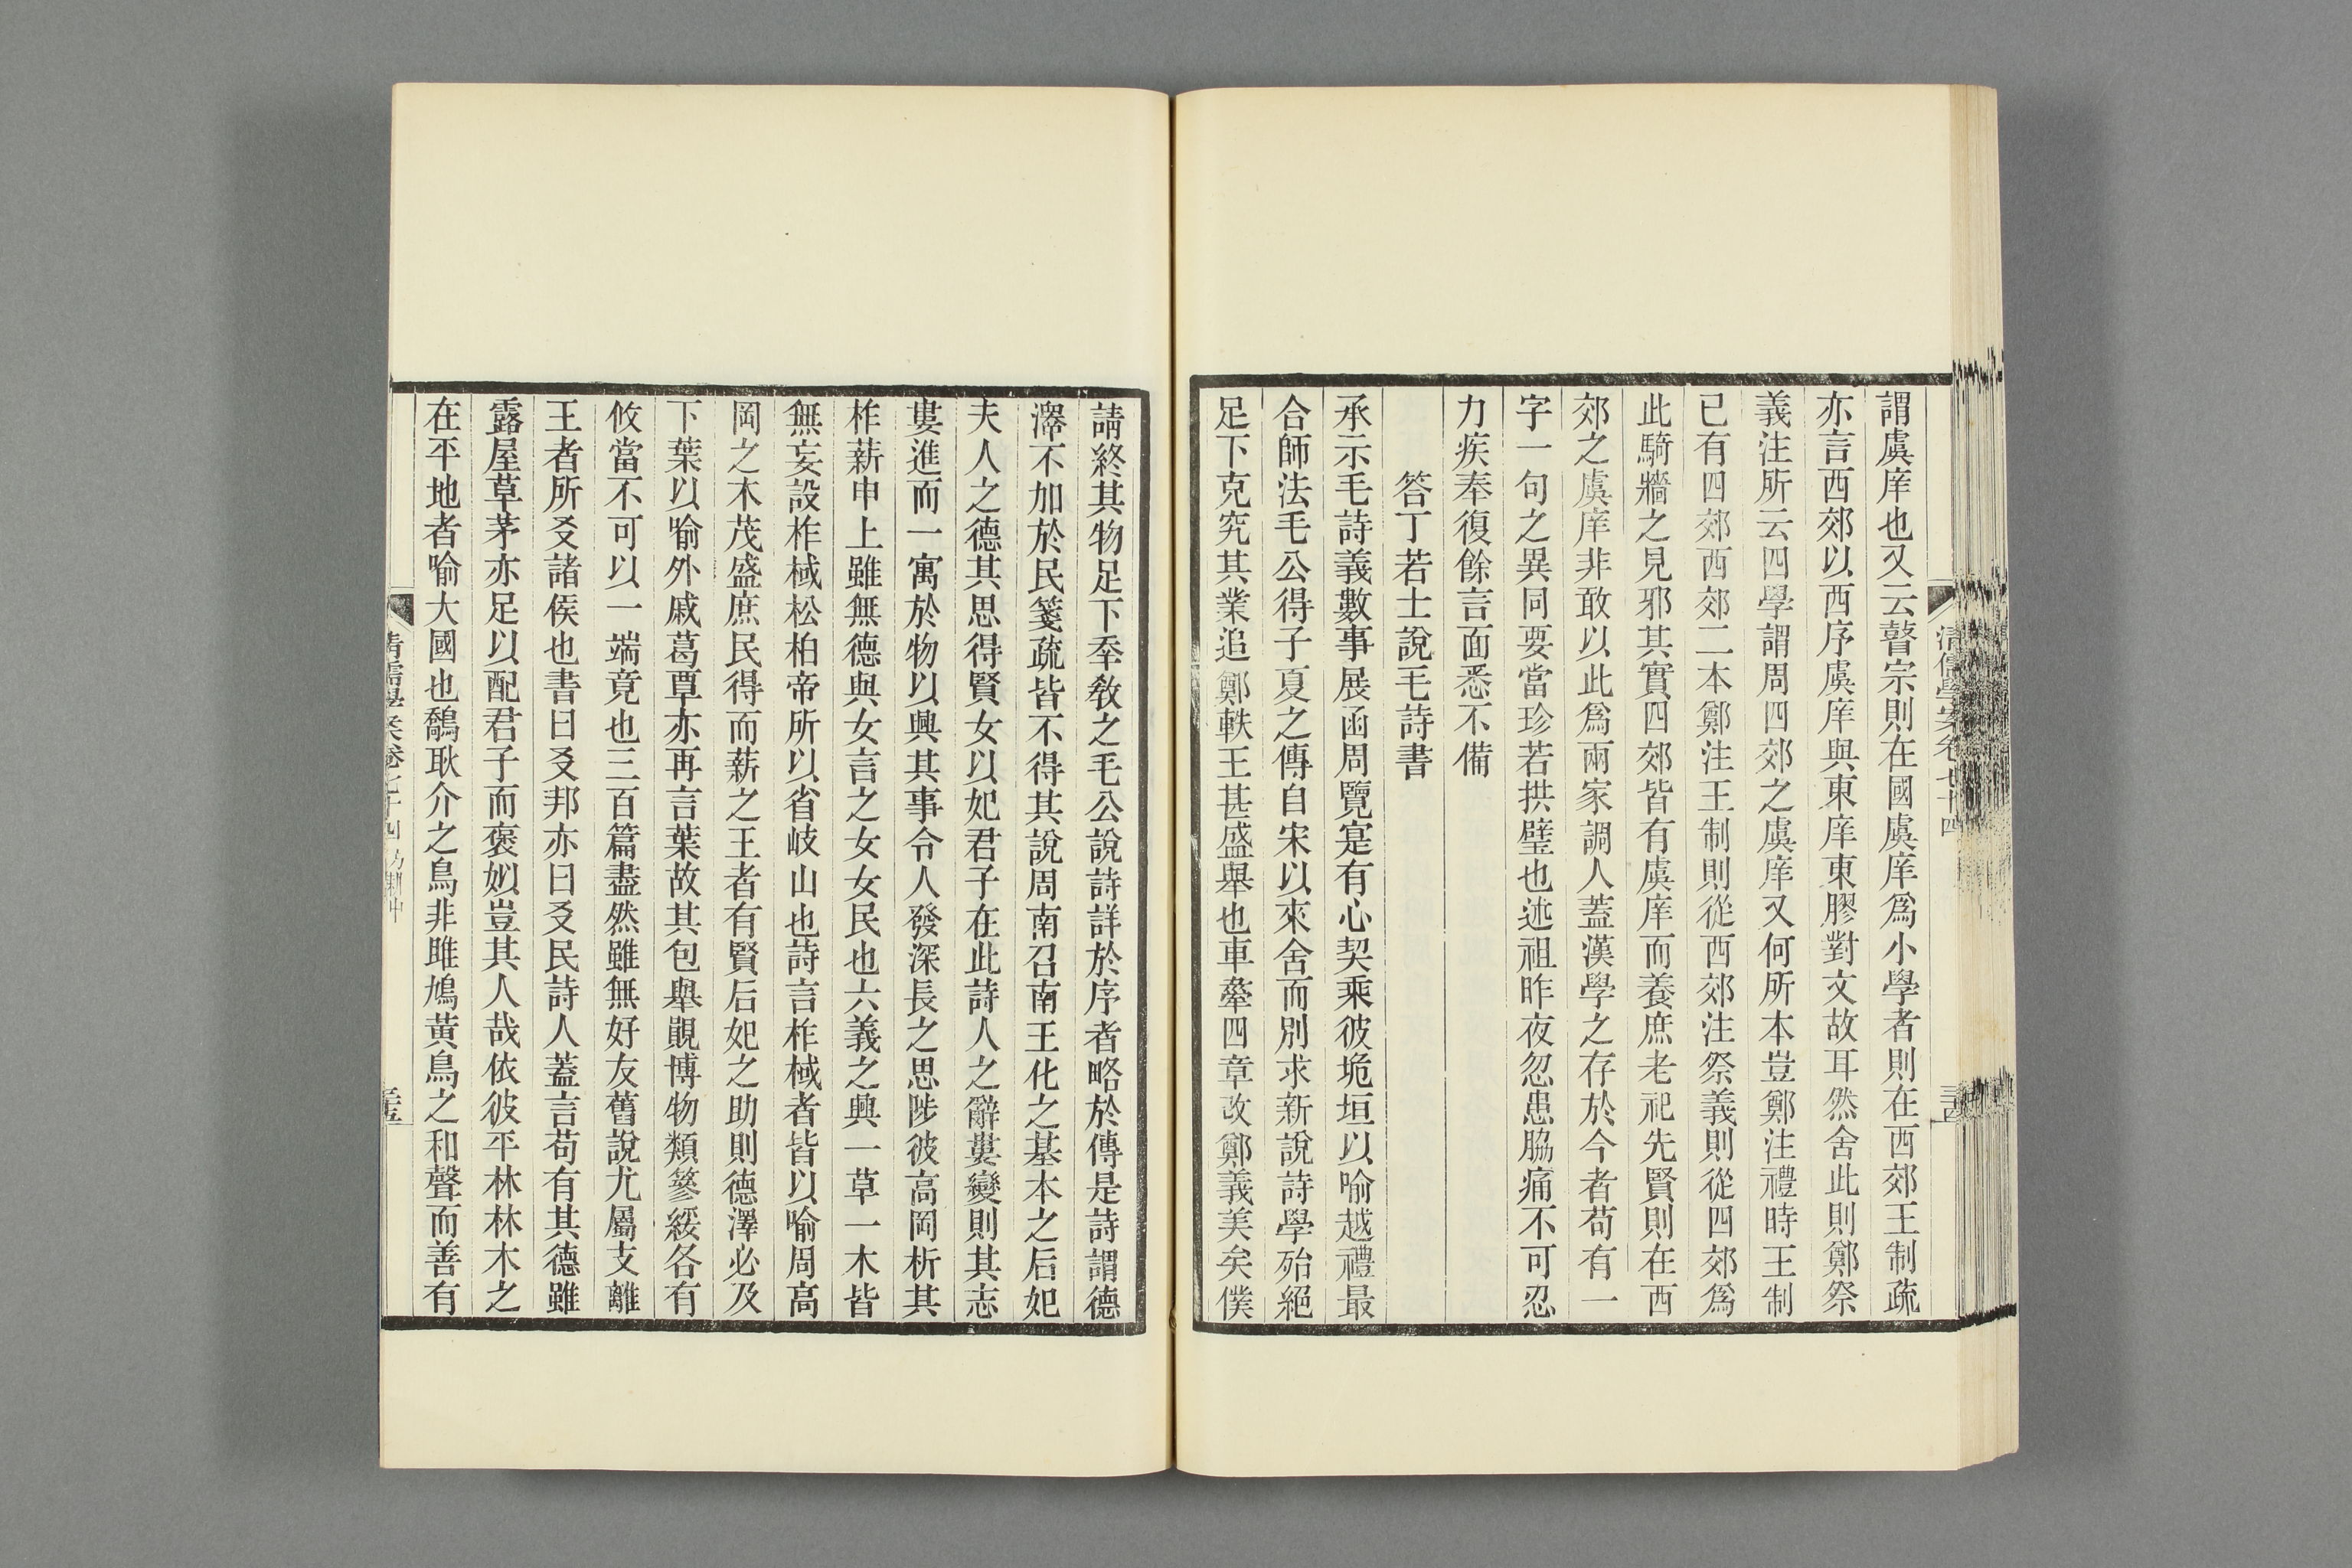 謂虞庠也又云瞽宗則在國虞庠爲小學者則在西郊王制疏
亦言西郊以西序虞庠與東庠東膠對文故耳然舍此則鄭祭
義注所云四學謂周四郊之虞庠又何所本豈鄭注禮時王制
已有四郊西郊二本鄭注王制則從西郊注祭義則從四郊爲
此騎牆之見邪其實四郊皆有虞庠而養庶老祀先賢則在西
郊之虞庠非敢以此爲兩家調人蓋漢學之存於今者苟有一
字一句之異同要當珍若拱璧也述祖昨夜忽患脇痛不可忍
力疾奉復餘言面悉不備
答丁若士說毛詩書
承示毛詩義數事展函周覽寔有心契乘彼垝垣以喻越禮最
合師法毛公得子夏之傳自宋以來舍而別求新說詩學殆絕
足下克究其業追鄭軼王甚盛舉也車舝四章改鄭義美矣僕
清儒學案卷七十四
三十四
請終其物足下奉敎之毛公說詩詳於序者略於傳是詩謂德
澤不加於民箋疏皆不得其說周南召南王化之基本之后妃
夫人之德其思得賢女以妃君子在此詩人之辭婁變則其志
婁進而一寓於物以興其事令人發深長之思陟彼高岡析其
柞薪申上雖無德與女言之女女民也六義之興一草一木皆
無妄設柞棫松柏帝所以省岐山也詩言柞棫者皆以喻周高
岡之木茂盛庶民得而薪之王者有賢后妃之助則德澤必及
下葉以喻外戚葛覃亦再言葉故其包舉覼博物類篸綏各有
攸當不可以一端竟也三百篇盡然雖無好友舊說尤屬支離
王者所爻諸侯也書曰爻邦亦曰爻民詩人蓋言苟有其德雖
露屋草茅亦足以配君子而褒姒豈其人哉依彼平林林木之
在平地者喻大國也鷮耿介之鳥非雎鳩黃鳥之和聲而善有
清儒學案卷七十四
三十五